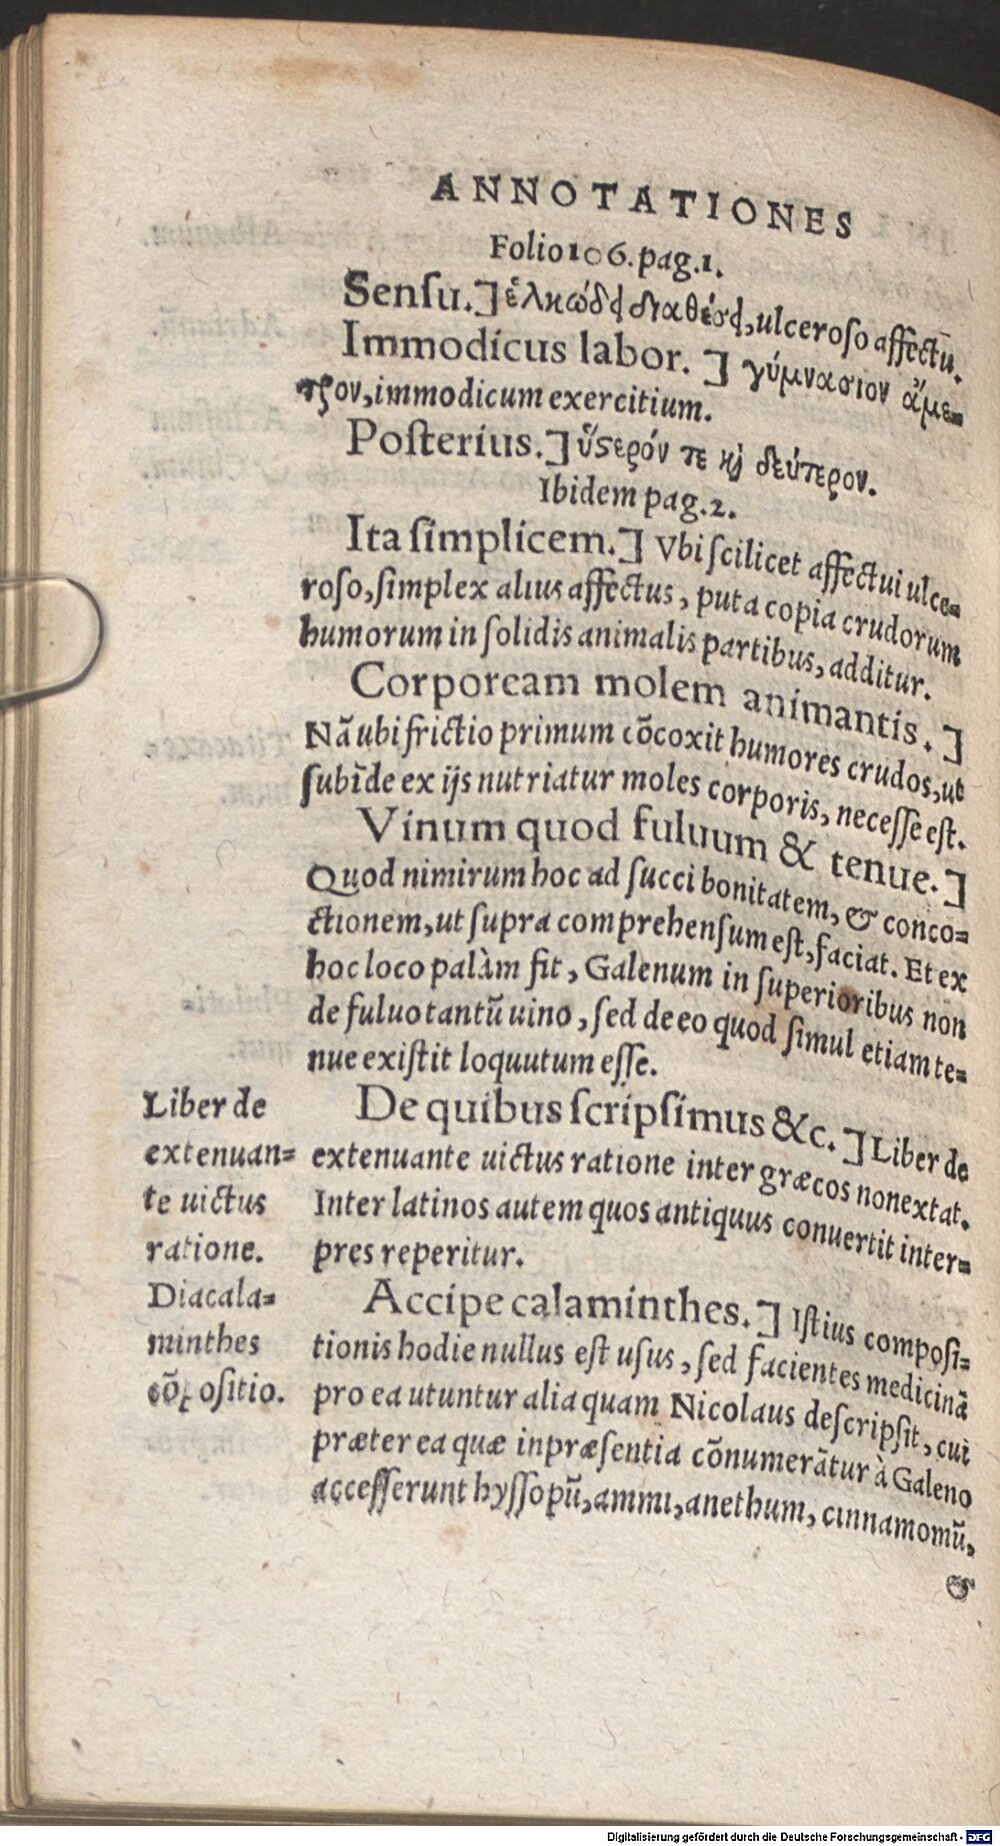 ANNOTATIONES
Folio 106. pag. 1.
Senſu.] ἑλκώδει διαθέσει, ulceroſo affectū.
Immodicus labor.] γύμνασιον ἄμε-
τρον, immodicum exercitium.
Poſterius.] ὕστερόν τε καὶ δεύτερον.
Ibidem pag. 2.
Ita ſimplicem.] Vbi ſcilicet affectui ulce-
roſo, ſimplex alius affectus, puta copia crudorum
humorum in ſolidis animalis partibus, additur.
Corpoream molem animantis.]
Nã ubi frictio primum cõcoxit humores crudos, ut
ſubĩde ex ijs nutriatur moles corporis, neceſſe eſt.
Vinum quod fuluum & tenue.]
Quod nimirum hoc ad ſucci bonitatem, & conco-
ctionem, ut ſupra comprehenſum eſt, faciat. Et ex
hoc loco palàm fit, Galenum in ſuperioribus non
de fuluo tantũ uino, ſed de eo quod ſimul etiam te-
nue exiſtit loquutum eſſe.
De quibus ſcripſimus &c.] Liber de
extenuante uictus ratione inter græcos non extat.
Inter latinos autem quos antiquus conuertit inter-
pres reperitur.
Accipe calaminthes.] Iſtius compoſi-
tionis hodie nullus eſt uſus, ſed facientes medicinã
pro ea utuntur alia quam Nicolaus deſcripſit, cui
præter ea quæ inpræſentia cõnumerãtur à Galeno
acceſſerunt hyſſopũ, ammi, anethum, cinnamomũ,
&
Liber de
extenuan-
te uictus
ratione.
Diacala-
minthes
cõpoſitio.
Digitalisierung gefördert durch die Deutsche Forschungsgemeinschaft - DFG